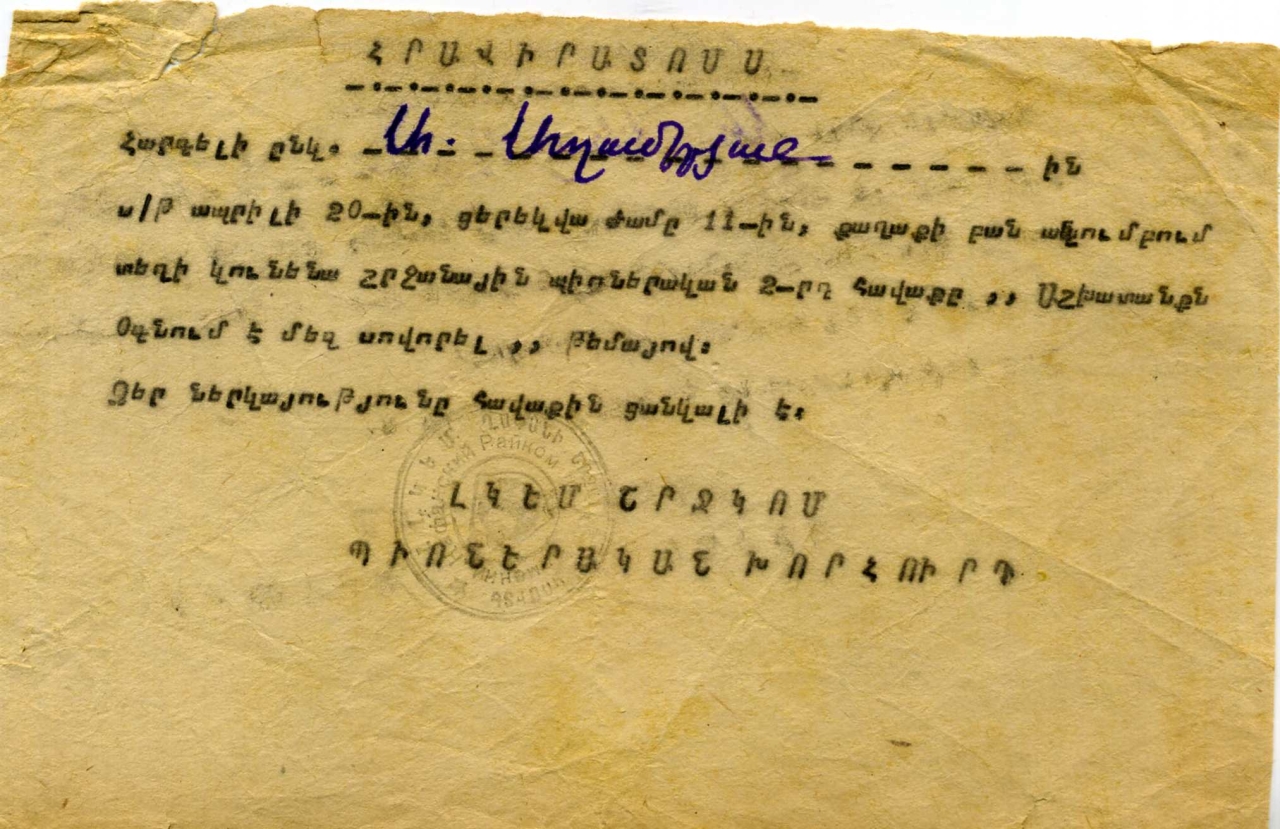 ՀՐԱՎԻՐԱՏՈՄՍ
Հարգելի ընկ. Ա. Ադամյան ին
ս/թ ապրիլի 20-ին, ցերեկվա ժամը 11-ին, քաղաքի բան ակումբում
տեղի կունենա շրջանային պիոներական 2-րդ հավաքը ,, Աշխատանքն
Օգնում է մեզ սովորել ,, թեմայով:
Ձեր ներկայությունը հավաքին ցանկալի է.
ԼԿԵՄ ՇՐՋԿՈՄ
ՊԻՈՆԵՐԱԿԱՆ ԽՈՐՀՈՒՐԴ
Райком